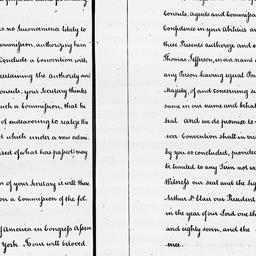 es no Inconvenience likely to
ommission, authorizing him
Conclude a Convention with
certaining the authority and
onsuls, your Secretary thinks
such a Commission, that he
of endeavouring to realize the
d which under a new admi.
ised of what has passed may
n of your Secretary it will there
on a Commission of the fol.
America in Congress Assem
York. To our well beloved
Consuls, Agents and Commissar
Confidence in your Abilities an
these Presents authorize and e
Thomas Jefferson, in our name a
any Person having equal Pow
Majesty, of and concerning su
same in our name and behalf
seal. And we do promise to
ver Convention shall in vir
by you so concluded, provided
be limited to any Term not ex
Witness our seal and the Sig
Arthur St. Clair our President
in the year of our Lord one th
and eighty seven, and the
ence.